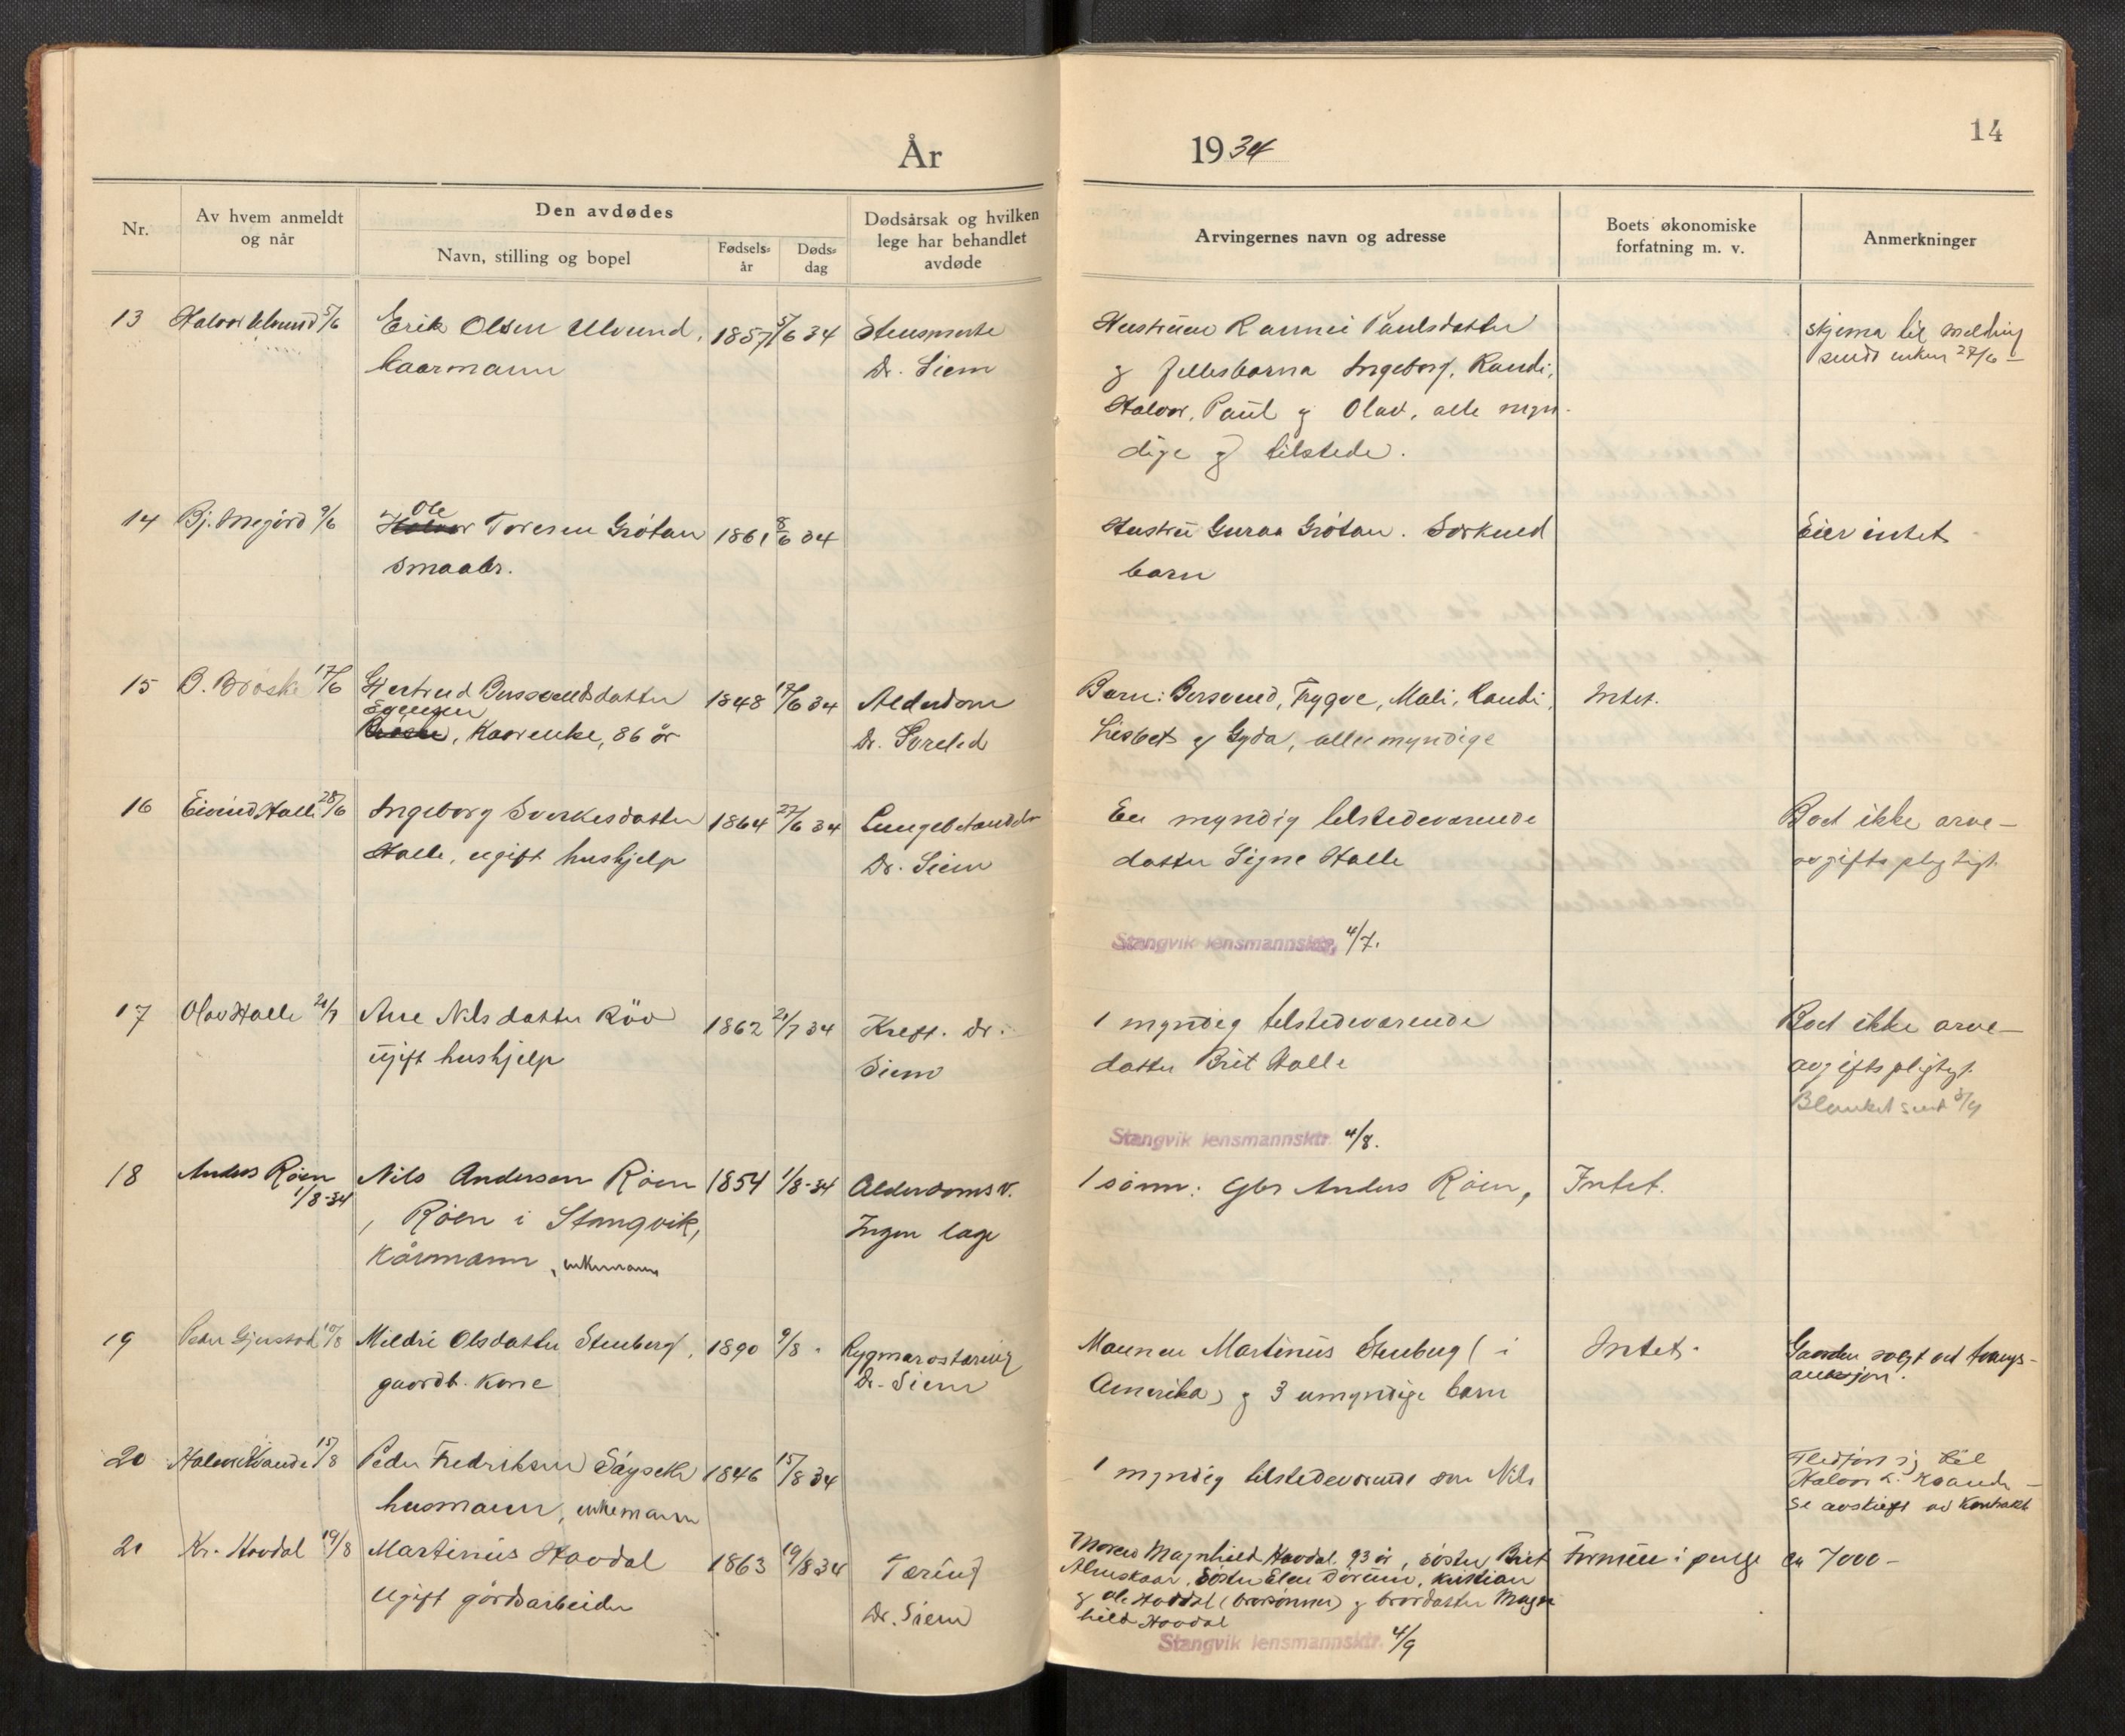 År
1934
14
Nr.
Av hvem anmeldt
og når
Den avdødes
Navn, stilling og bopel
Fødsels-
år
Døds-
dag
Dødsårsak og hvilken
lege har behandlet
avdøde
Arvingernes navn og adresse
Boets økonomiske
forfatning m. v.
Anmerkninger
13 Halvor Ulvund 5/6 Erik Olsen Ulvund, 1857 5/6 34
kaarmann
Dr. Siem
Hustruen Rannei Paulsdatter
g fellesbarna Ingeborg, Randi,
Halvor, Paul g Olav, alle myn-
dige g tilstede.
skjema til melding
sendt enken 27/6
14 Bj. Megård 9/6 Ole
Halvor Toresen Grötan 1861 8/6 34
smaabr.
Hustru Guraa Grötan. Sørkned
barn
Eier intet
15 B. Bröske 17/6 Gjertrud Bersvendsdatter 1848 17/6 34 Alderdom
, Kaarenke, 86 år
Dr.
Barn: Bersvend, Trygve, Mali, Randi,
Lisbet g Gyda, alle myndige
Intet.
16 Eivind Halle 28/6 Ingeborg Sverkesdatter 1864 27/6 34 Lungebetendelse
Halle, ugift hushjelp
Dr. Siem
En myndig tilstedeværende
datter Signe Halle
Boet ikke arve-
avgiftspligtigt
Stangvik lensmannsktr, 4/7.
17 Olav Halle 21/7 Ane Nilsdatter Röv 1862 21/7 34 Kreft. Dr.
ugift hushjelp
Siem
1 myndig tilstedeværende
datter Brit Halle
Boet ikke arve-
avgiftspligtigt.
Blanket sendt 3/9
Stangvik lensmannsktr. 4/8.
18 Anders Röen
1/8-34
Nils Andersen Röen 1854 1/8-34 Alderdomsv.
, Röen i Stangvik,
Ingen læge
Kårmann, enkemann
1 sönn: Gbr Anders Röen,
Intet.
19 Peder Gjerstad 10/8 Mildri Olsdatter Stenberg, 1890 9/8 " Rygmarvstæring
gaardbr. kone
Dr. Siem
Mannen Martinus Stenberg (i
Amerika) g 3 umyndige barn
Intet.
Gaarden solgt ved tvangs-
auksjon.
20 Halvor Kvande 15/8 Peder Fredriksen Säyseth 1846 15/8 34
husmann, enkemann
1 myndig tilstedeværende søn Nils
Fledført sig til
Halvor L. Kvande -
Se avskrift av kontrakt
21 Kr. Hovdal 19/8 Martinus Hovdal 1863 19/8 34 Tæring
ugift gårdsarbeider
Dr. Siem
Moren Magnhild Hovdal 93 år, søster Brit
Almskaar, søster Elen, Kristian
g Ole Hovdal (brorsønner) g brordatter Magn
hild Hovdal
Formue i penge ca 7000 -
Stangvik lensmannsktr. 4/9